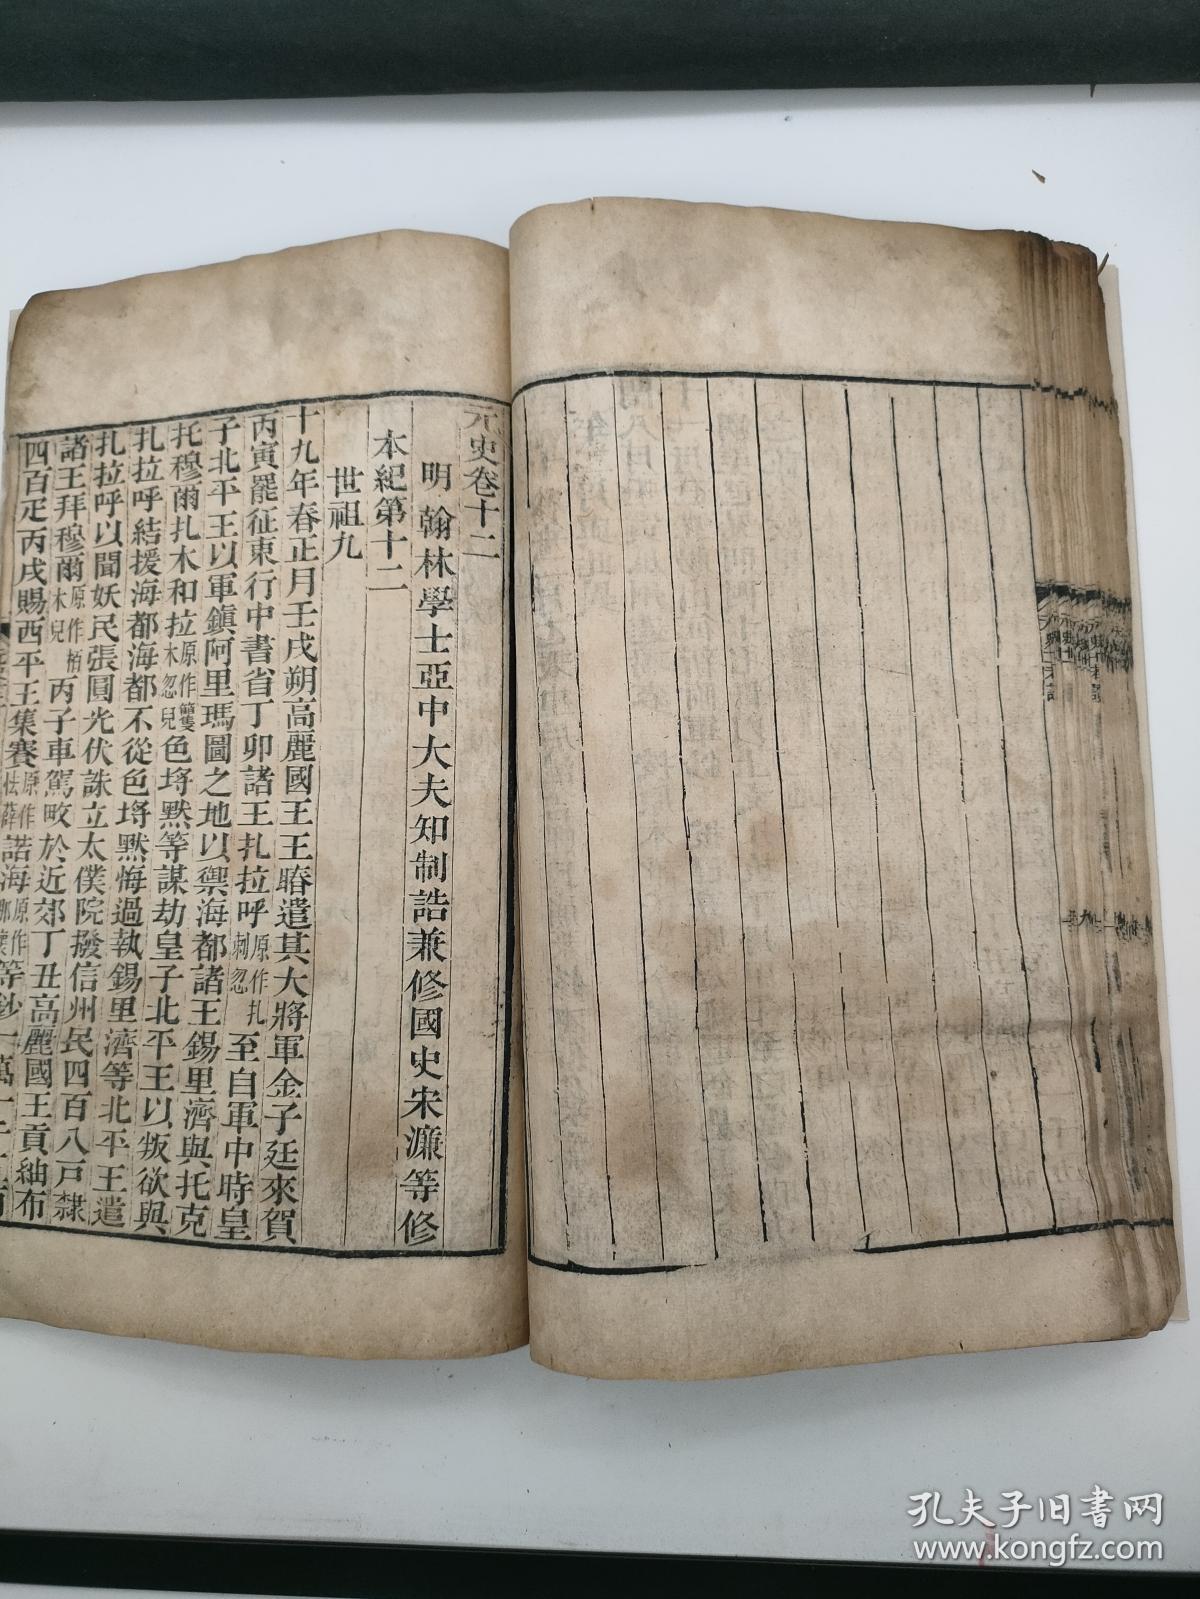 元史卷十二
明翰林學士亞中大夫知制誥兼修國史宋濂等修
本紀第十二
世祖九
十九年春正月壬戌朔高麗國王王賰遣其大將軍金子廷來賀
丙寅罷征東行中書省丁卯諸王扎拉呼原作扎剌忽至自軍中時皇
子北平王以軍鎮阿里瑪圖之地以禦海都諸王錫里濟與托克
托穆爾扎木和拉原作木忽兒色埓默等謀劫皇子北平王以叛欲與
扎拉呼結援海都海都不從色埓默悔過執錫里濟等北平王遣
扎拉呼以聞妖民張圓光伏誅立太僕院撥信州民四百八戶隸
諸王拜穆爾原作栢木兒丙子車駕畋於近郊丁丑高麗國王貢紬布
四百疋丙戌賜西平王集賽原作怯薛諾海原作那懷等鈔一萬一千
孔夫子旧书网
www.kongfz.com